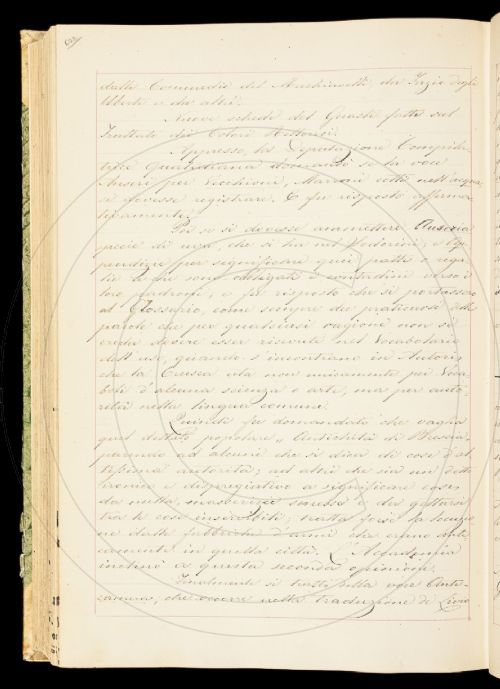 dalle Commedie del Machiavelli, da Fazio degli
Uberti e da altri.
Nuove schede del Guasti fatte sul
Trattato dei Colori Rettorici.
Appresso, la Deputazione Compila-
trice domandò se la voce
per Vecchioni, Marroni cotti nell'acqua,
si dovesse registrare. E fu risposto afferma-
tivamente.
Più se si dovesse ammettere
specie di uva, che si ha nel Soderini, e Ap-
pendizie per significare quei patti o rega-
lie a che sono obbligati i contadini verso i
loro padroni, e fu risposto che si portassero
al Glossario, come sempre dee praticarsi delle
parole che per qualsivesi ragione non si
creda dovere esser ricevute nel Vocabolario
dell'uso, quando s'incontrano in Autori
che la Crusca cita non unicamente per Voca-
boli d'alcuna scienza o arte, ma per auto-
rità nella lingua comune.
Quindi fu domandato che vaglia
quel dettato popolare „ Antichità di Brescia,
parendo ad alcuni che si dica di cose d'al-
tissima autorità; ad altri che sia un detto
ironico e dispregiativo a significare cose
da nulla, masserizie smesse e da gettarsi
tra le cose inservibili; tratta forse la locuzio-
ne dalle fabbriche d'armi che erano anti-
camente in quella città. L'Accademia
inclinò a questa seconda opinione.
Finalmente si trattò della voce Anti-
camera, che occorre nella traduzione di Livio